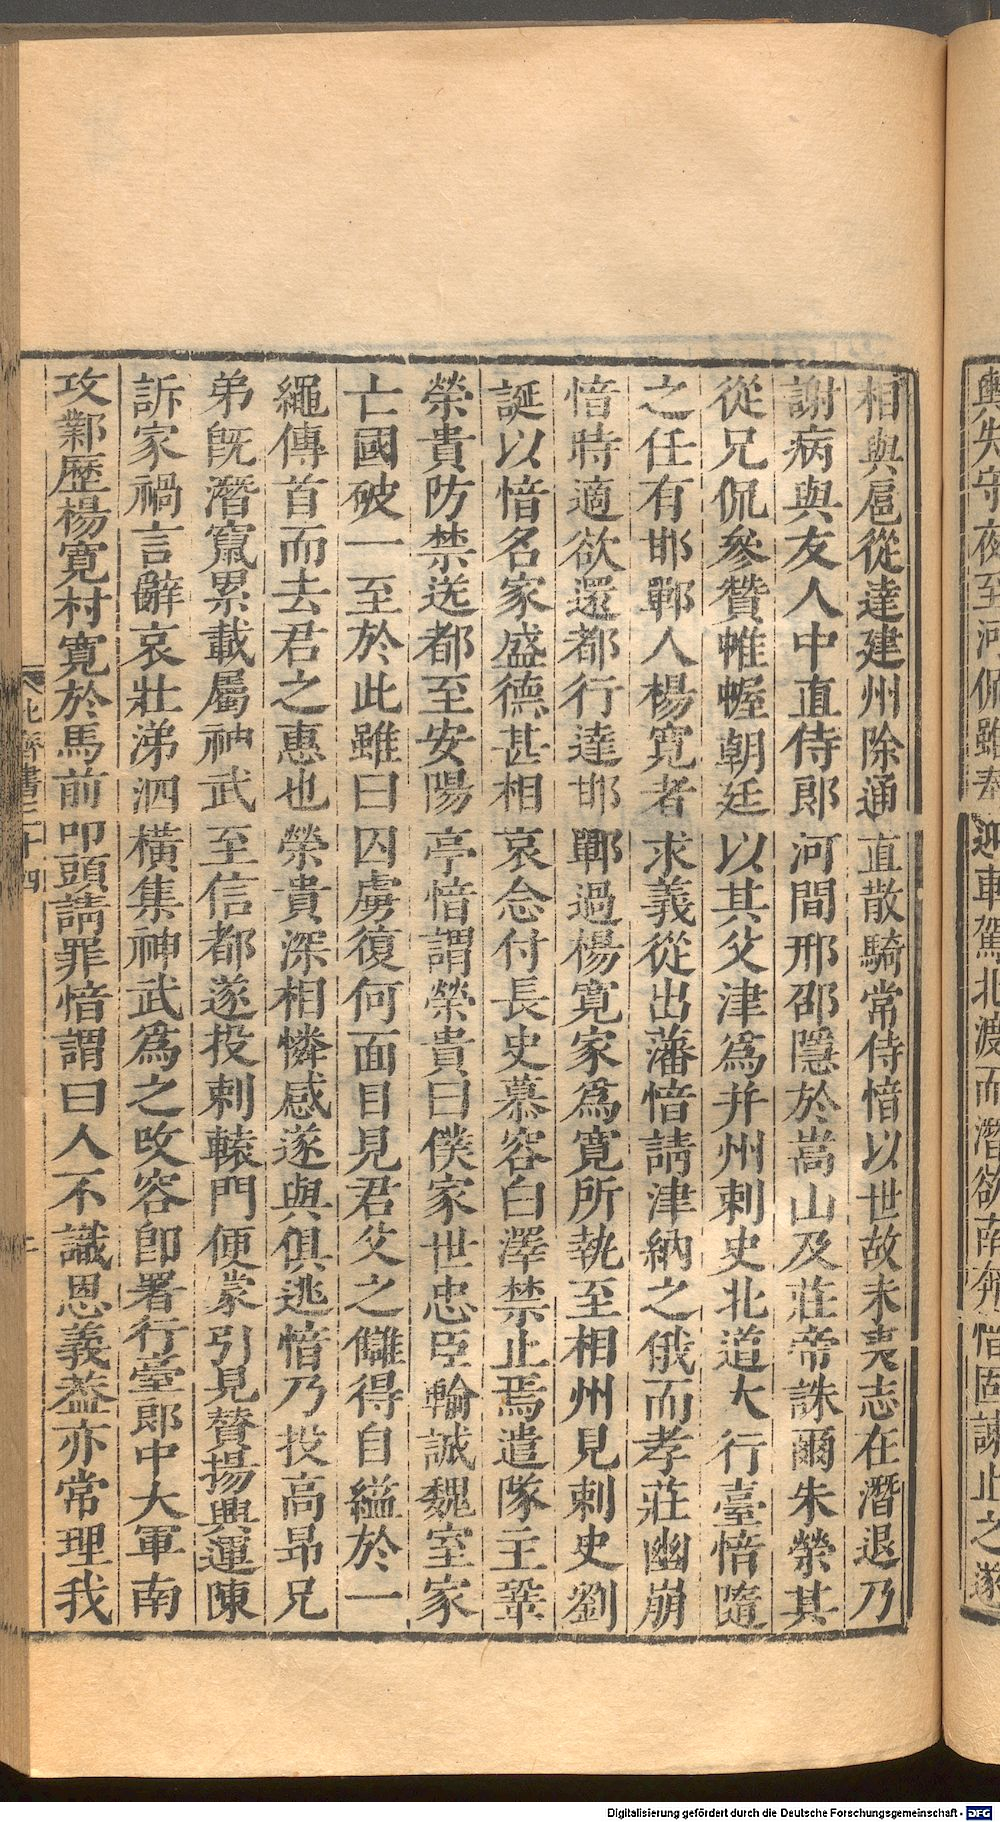 輿失守夜至河
迎車駕北渡而潛欲南奔愔固諫止之遂
相與扈從達建州除通直散騎常侍愔以世故未夷志在潛退乃
謝病與友人中直侍郎河間邢邵隱於嵩山及莊帝誅爾朱榮其
從兄侃參贊帷幄朝廷以其父津爲并州刺史北道大行臺愔隨
之任有邯鄲人楊寬者求義從出藩愔請津納之俄而孝莊幽崩
愔時適欲還都行達邯鄲過楊寬家爲寬所執至相州見刺史劉
誕以愔名家盛德甚相哀念付長史慕容白澤禁止焉遣隊主鞏
榮貴防禁送都至安陽亭愔謂榮貴曰僕家世忠臣輸誠魏室家
亡國破一至於此雖曰囚虜復何面目見君父之讎得自縊於一
繩傳首而去君之惠也榮貴深相憐感遂與俱逃愔乃投高昂兄
弟旣潛竄累載屬神武至信都遂投刺轅門便蒙引見贊揚興運陳
訴家禍言辭哀壯涕泗橫集神武爲之改容卽署行臺郎中大軍南
攻鄴歷楊寬村寬於馬前叩頭請罪愔謂曰人不識恩義葢亦常理我
北齊書三十四
Digitalisierung gefördert durch die Deutsche Forschungsgemeinschaft - DFG